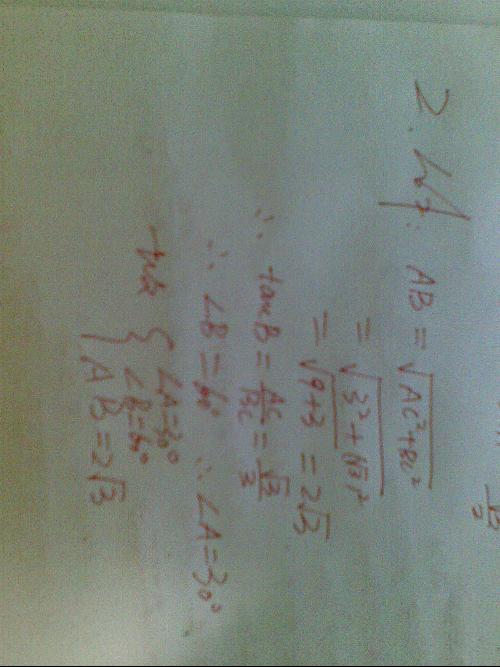 2.
AB = √AC²+BC²
= √3²+(√3)²
= √9+3 = 2√3
∴ tanB = AC/BC = √3/3
∴ ∠B = 60° ∴ ∠A = 30°
{ ∠A=30°
∠B=60°
AB=2√3